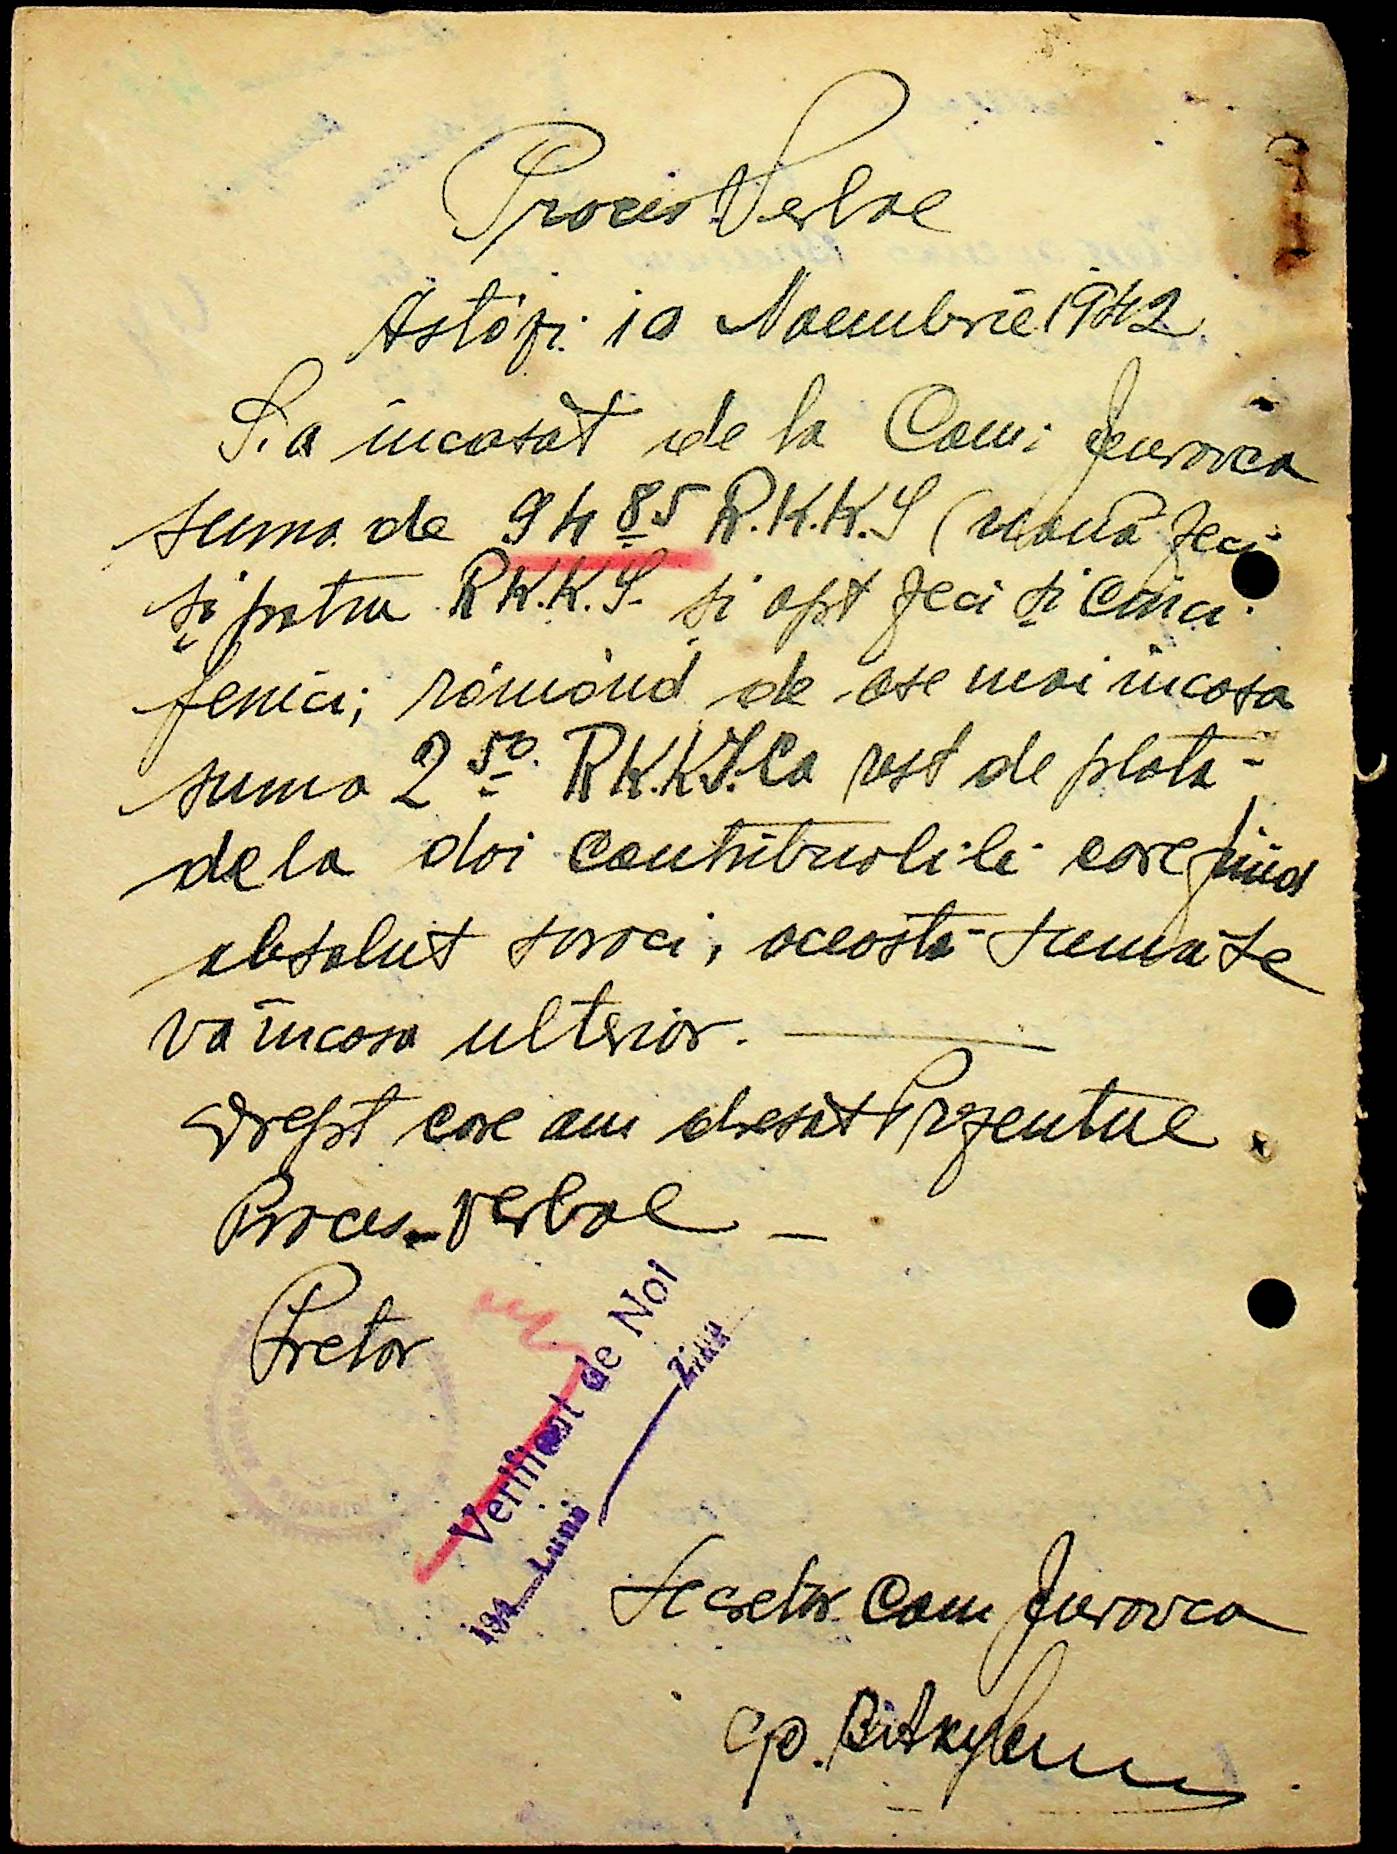 Proces Verbal
Astăzi 10 Noembrie 1942
S'a încasat de la Com. Jurovca
suma de 94 85 R.K.K.S (nouă zeci
și patru R.K.K.S. și opt zeci și cinci
fenici; rămând de ase mai incasa
suma 2 50 R.K.K.S. Ca rest de plată
de la doi contribuabili care fiind
absolut saraci, aceasta suma se
va incasa ulterior.
Drept care am dresat Prezentul
Proces-Verbal
Pretor
Verificat de Noi
194 Luna Ziua
Secretar Com Jurovca